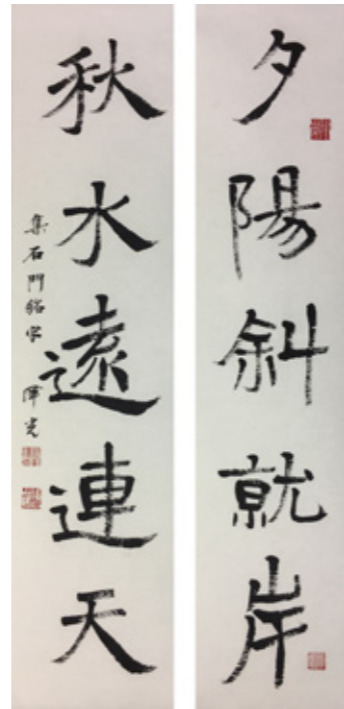 夕陽斜就岸
秋水遠連天
集石門銘字